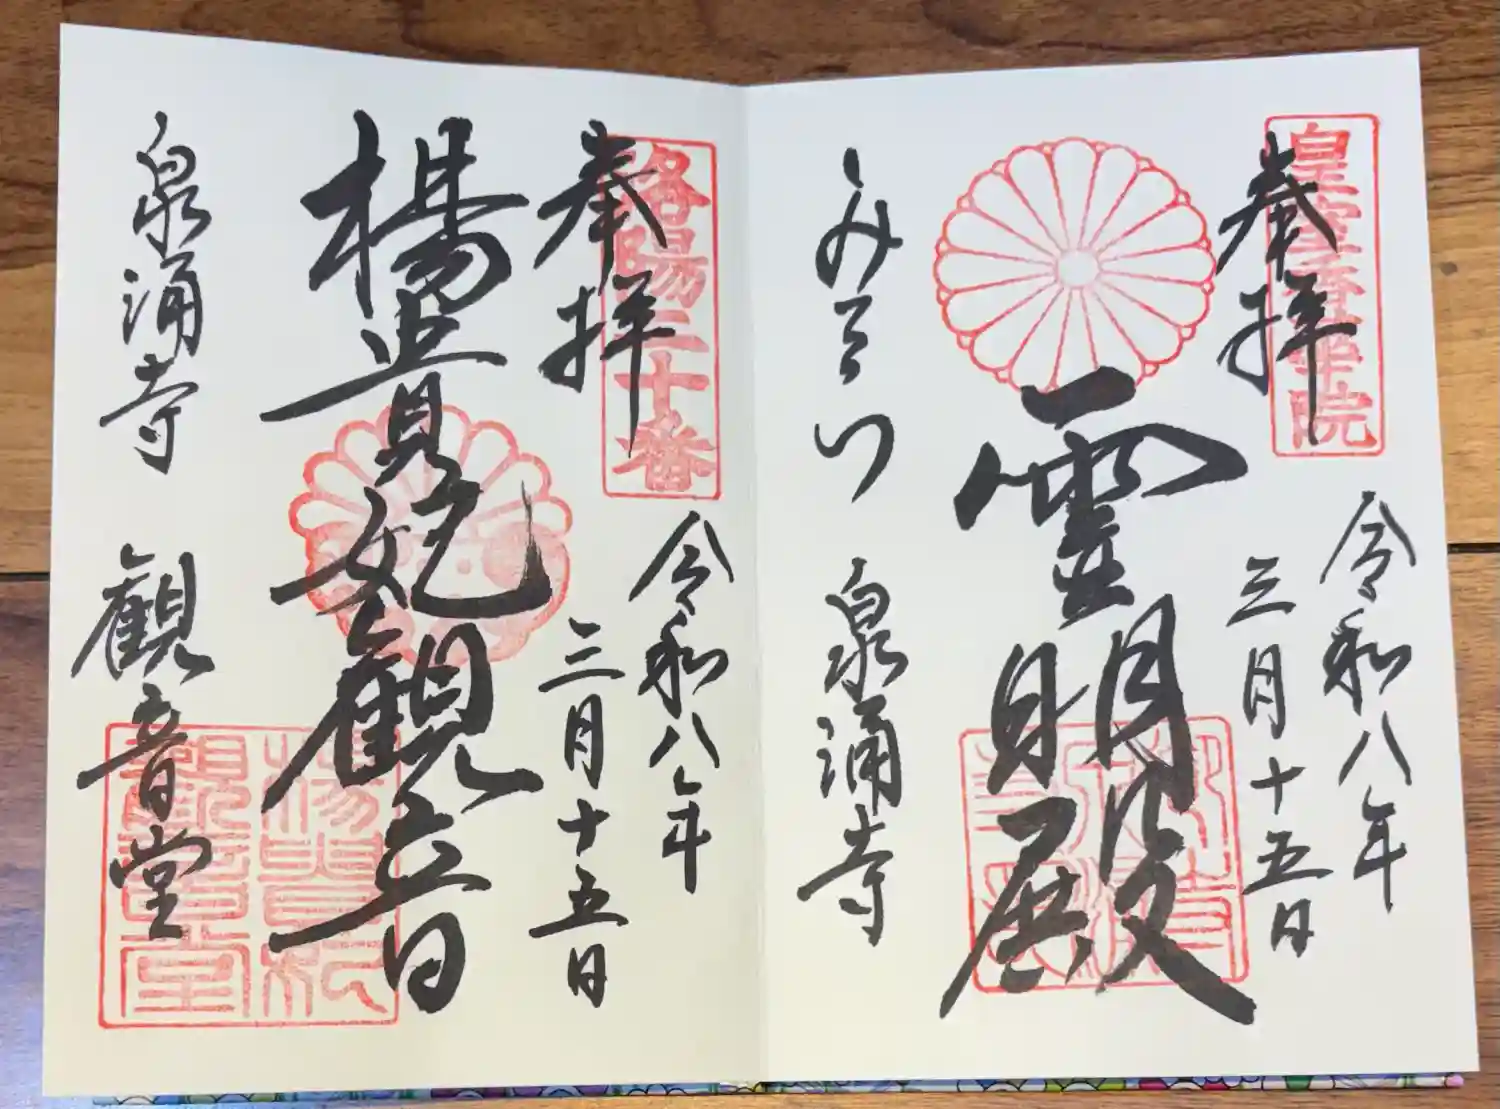 皇室香華院
奉拝
令和八年
三月十五日
霊明殿
みてら 泉涌寺
洛陽二十番
奉拝
令和八年
三月十五日
楊貴妃観音
泉涌寺 観音堂
楊貴妃
観音堂